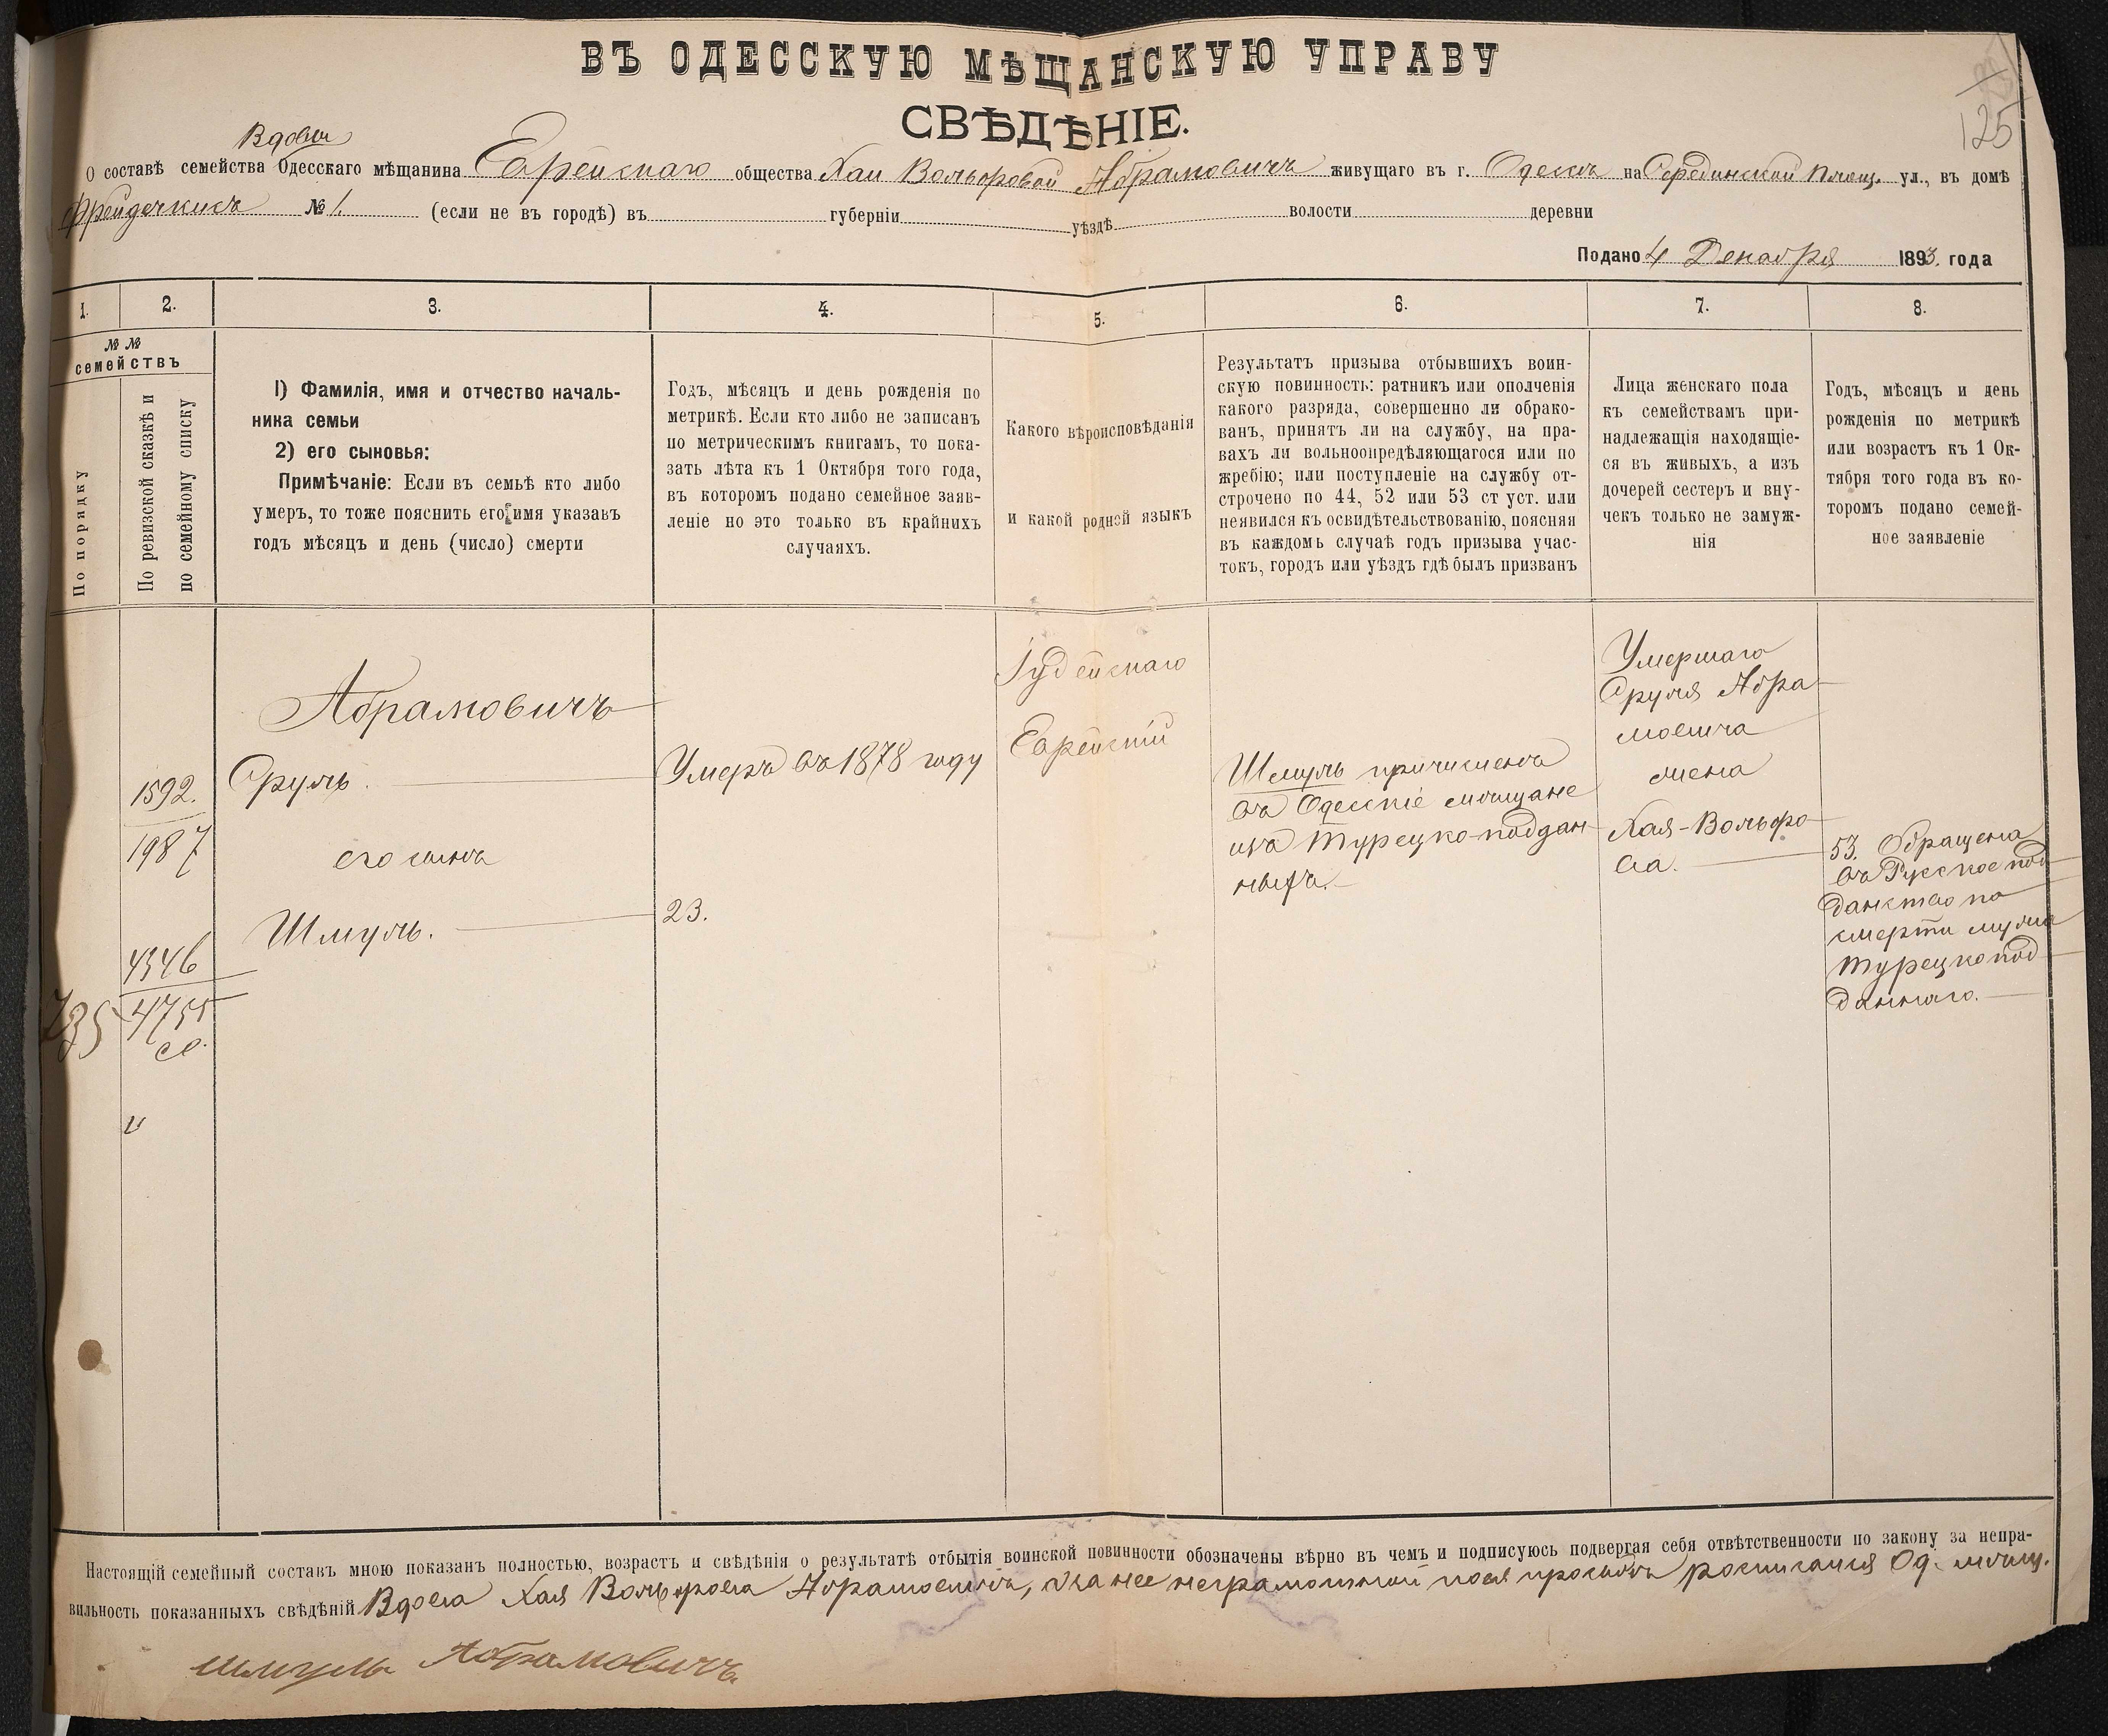 ВЪ ОДЕССКУЮ МѢЩАНСКУЮ УПРАВУ
СВѢДѢНІЕ.
125
Вдовы
О составѣ семейства Одесскаго мѣщанина Еврейскаго общества Хаи Вольфовой Абрамовичъ живущаго въ г. Одессѣ на Серединской площ. ул., въ домѣ
№ 1. (если не въ городѣ) въ губерніи уѣздѣ волости деревни
Подано 4 Декабря 1893. года
1.
2.
3.
4.
5.
6.
7.
8.
№ №
семействъ
По порядку
По ревизской сказкѣ и
по семейному списку
1) Фамилія, имя и отчество началь-
ника семьи
2) его сыновья:
Примѣчаніе: Если въ семьѣ кто либо
умеръ, то тоже пояснить его имя указавъ
годъ мѣсяцъ и день (число) смерти
Годъ, мѣсяцъ и день рожденія по
метрикѣ. Если кто либо не записанъ
по метрическимъ книгамъ, то пока-
зать лѣта къ 1 Октября того года,
въ которомъ подано семейное заяв-
леніе но это только въ крайнихъ
случаяхъ.
Какого вѣроисповѣданія
и какой родной языкъ
Результатъ призыва отбывшихъ воин-
скую повинность: ратникъ или ополченія
какого разряда, совершенно ли обрако-
ванъ, принятъ ли на службу, на пра-
вахъ ли вольноопредѣляющагося или по
жребію; или поступленіе на службу от-
строчено по 44, 52 или 53 ст уст. или
неявился къ освидѣтельствованію, поясняя
въ каждомъ случаѣ годъ призыва учас-
токъ, городъ или уѣздъ гдѣ былъ призванъ
Лица женскаго пола
къ семействамъ при-
надлежащія находящіе-
ся въ живыхъ, а изъ
дочерей сестеръ и вну-
чекъ только не замуж-
нія
Годъ, мѣсяцъ и день
рожденія по метрикѣ
или возрастъ къ 1 Ок-
тября того года въ ко-
торомъ подано семей-
ное заявленіе
1592.
1987
4346
4755
735
Абрамовичъ
Сруль.
его сынъ
Шмуль.
Умеръ въ 1878 году
23.
Іудейскаго
Еврейскій
Шмуль причисленъ
въ Одесскіе мѣщане
изъ Турецко-поддан-
ныхъ.
Умершаго
Сруля Абра-
мовича
жена
Хая-Вольфо-
ва.
53. Обращена
въ Русское под-
данство по
смерти мужа
Турецкопод-
даннаго.
Настоящій семейный составъ мною показанъ полностью, возрастъ и свѣдѣнія о результатѣ отбытія воинской повинности обозначены вѣрно въ чемъ и подписуюсь подвергая себя отвѣтственности по закону за непра-
вильность показанныхъ свѣдѣній Вдова Хая Вольфова Абрамовичъ, за нее неграмотной по ея просьбѣ росписался Од. мѣщ.
Шмуль Абрамовичъ.